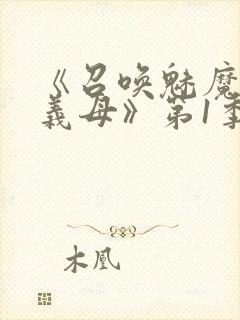 《召唤魅魔
義母》第1季
木凰